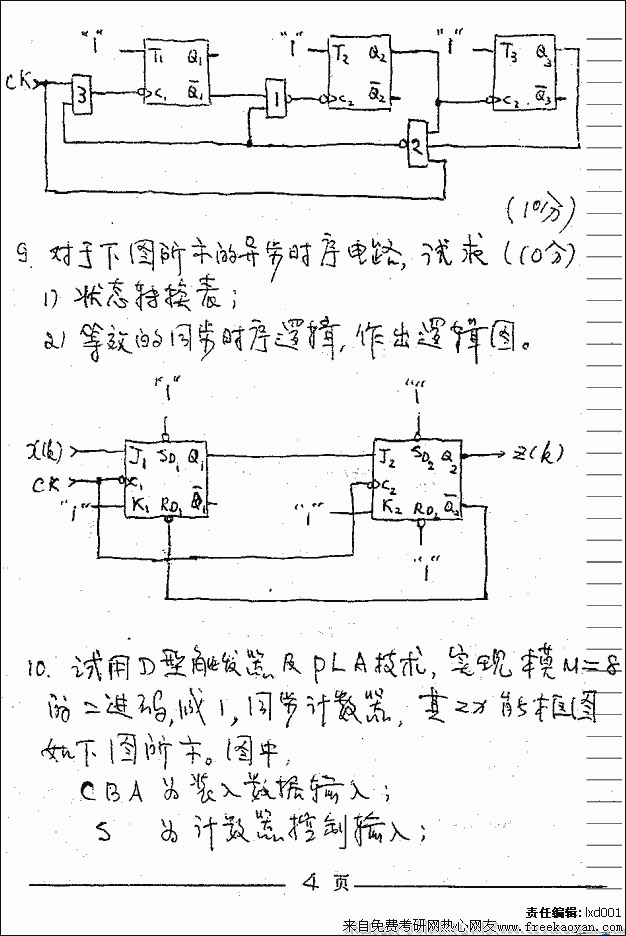 "1" T̅₁ Q₁ "1" T₂ Q₂ "1" T₃ Q₃
CK 3 C₁ Q̅₁ 1 C₂ Q̅₂ C₂ Q̅₃
2
(10分)
9. 对于下图所示的异步时序电路, 试求 (10分)
1) 状态转换表;
2) 等效的同步时序逻辑, 作出逻辑图。
"1" "1"
x(k) J₁ SD₁ Q₁ J₂ SD₂ Q₂ z(k)
CK C₁ C₂
"1" K₁ RD₁ Q̅₁ "1" K₂ RD₂ Q̅₂
"1"
10. 试用D型触发器及PLA技术, 实现模M=8
的二进码, 减1, 同步计数器, 其功能框图
如下图所示。图中,
CBA 为装入数据输入;
S 为计数器控制输入;
4 页
责任编辑: lxd001
来自免费考研网热心网友www.freekaoyan.com